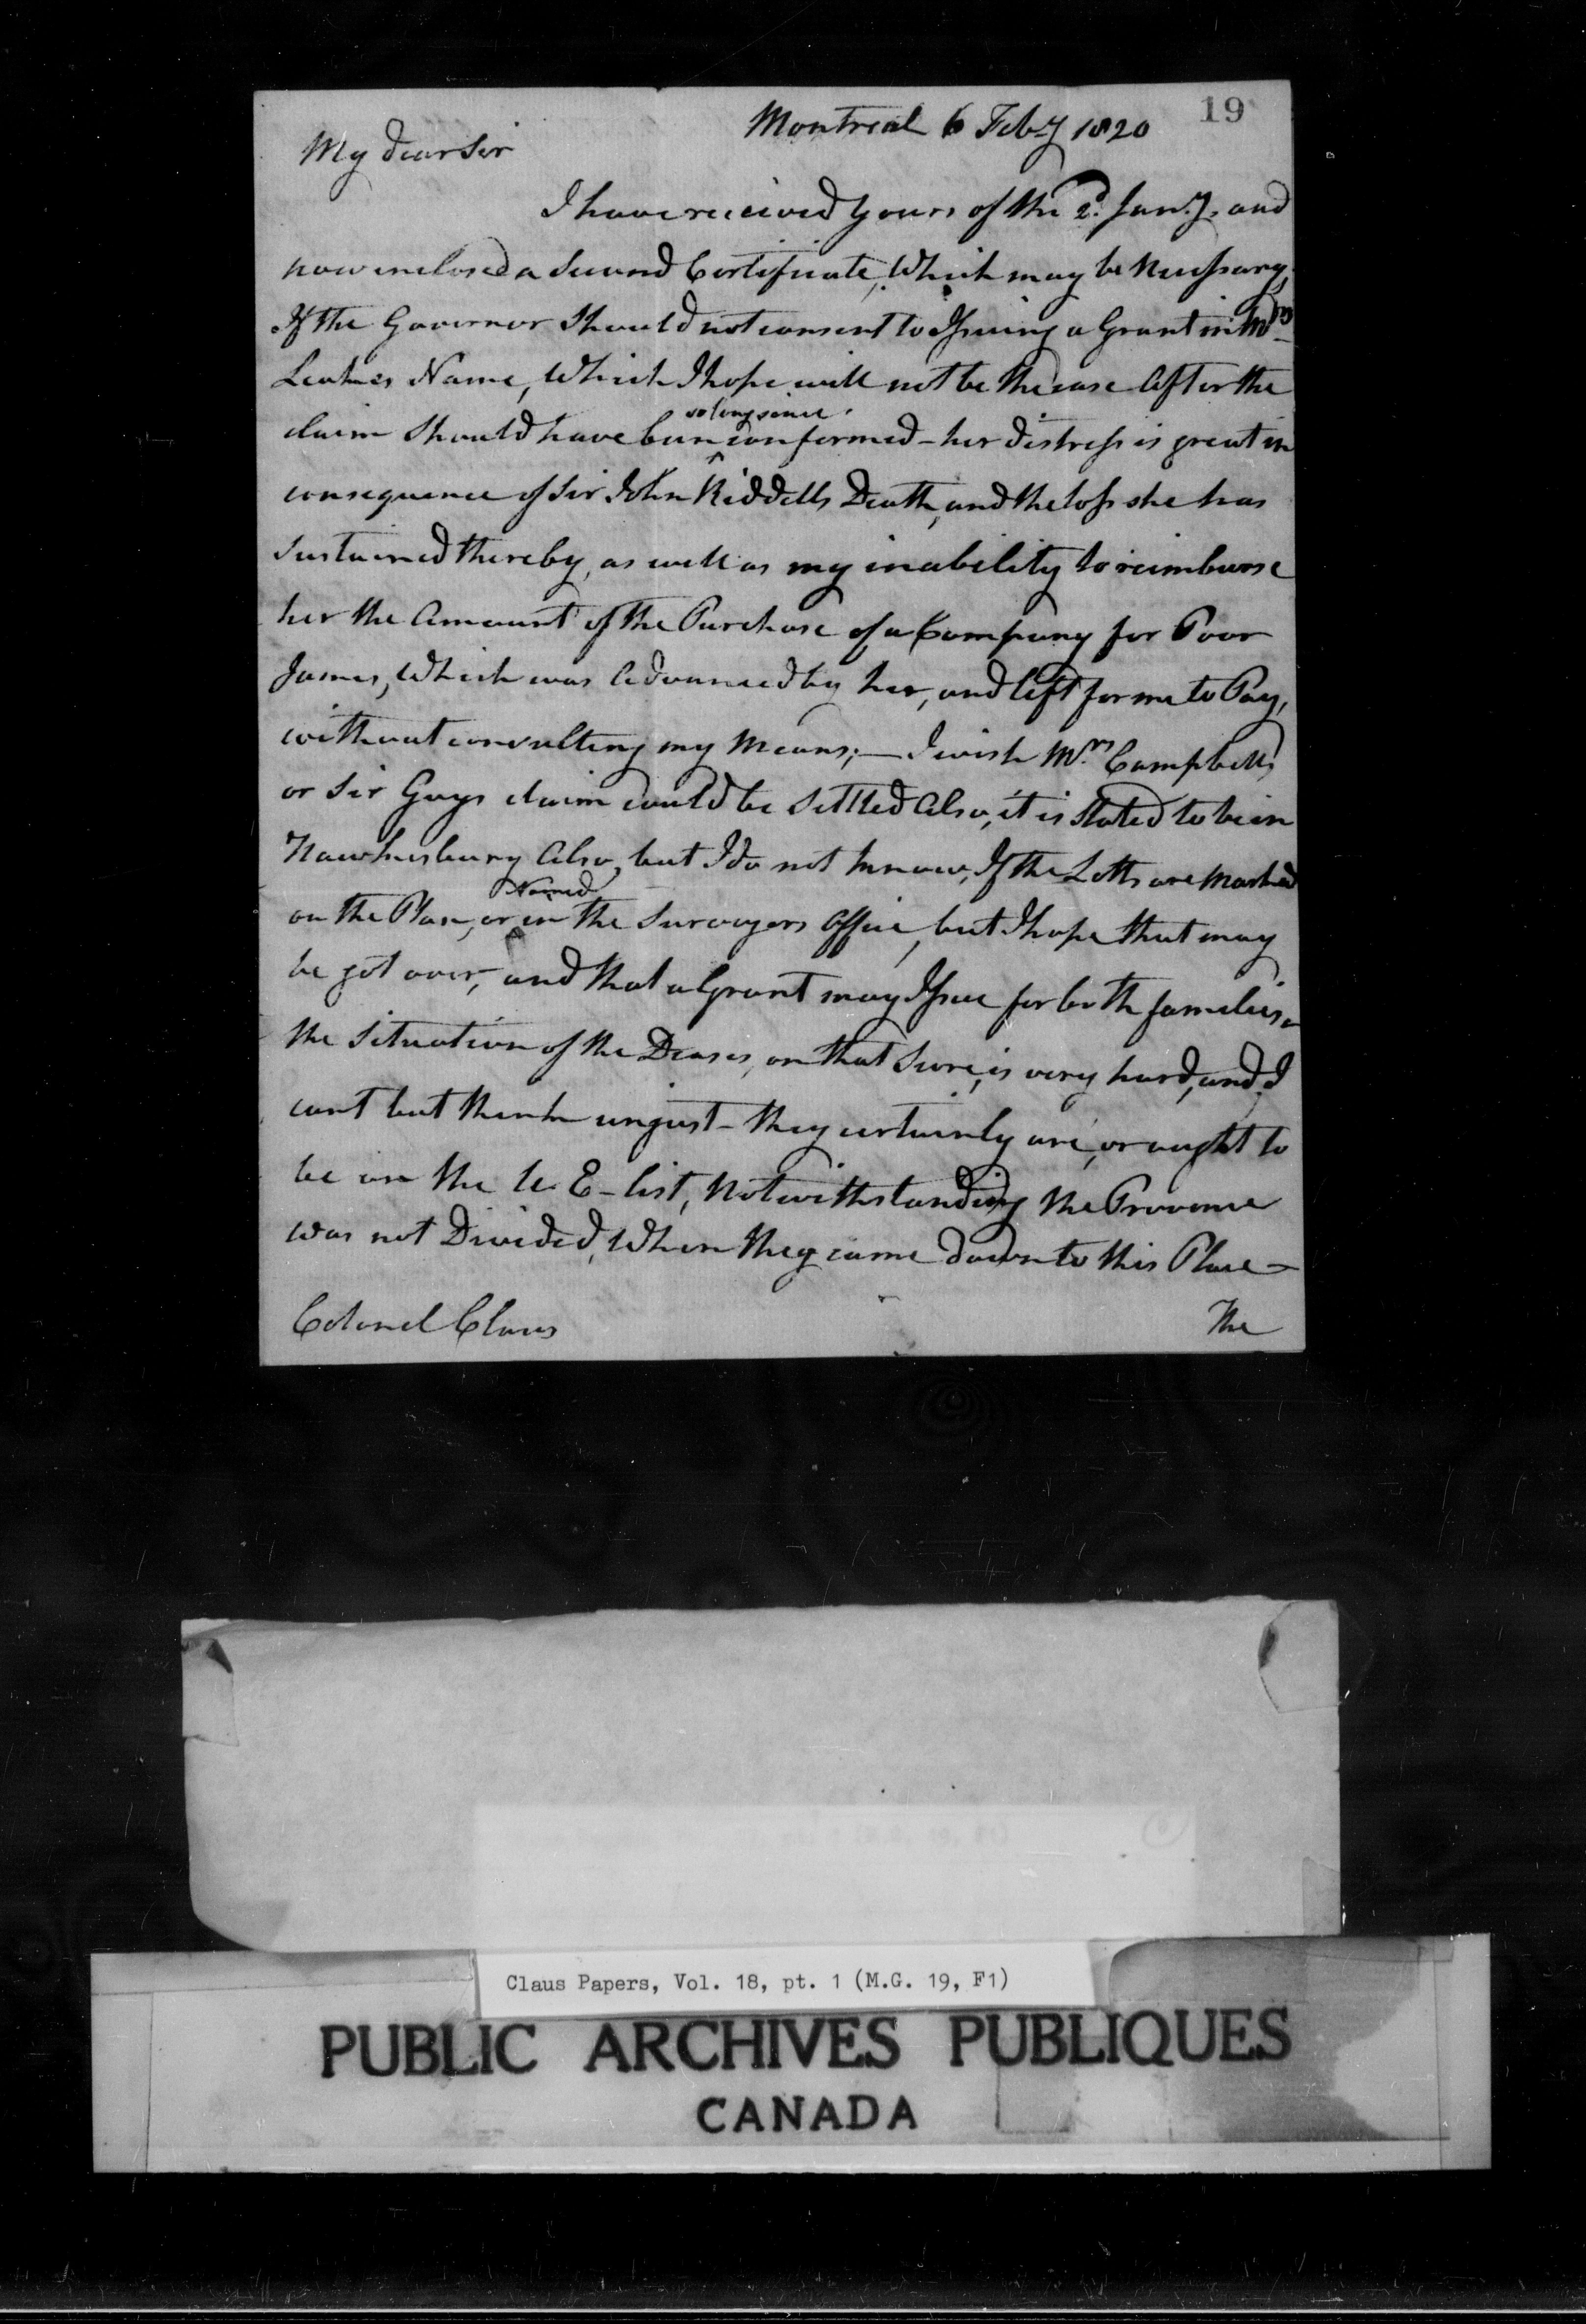 19
Montreal 6 Feb.y 1820
My dear Sir
I have received yours of the 2d. Jan.y. and
now inclosed a Second Certificate, Which may be Necessary,
If the Governor Should not consent to Issuing a Grant in Mrs
Leakes Name, Which I hope will not be the case After the
so long since
claim Should have been confermed - her distress is great in
consequence of Sir John Riddells Death, and the loss she has
sustained thereby, as well as my inability to reimburse
her the Amount of the Purchase of a Company for Poor
James, Which was Advanced by her, and left for me to Pay,
without consulting my Means; — I wish Mrs. Campbells
or Sir Guys claim could be Settled Also, it is Stated to be in
Hawkesbury Also, but I do not know, If the Lotts are Marked
Named
on the Plan, or in the Surveyors Office, but I hope that may
be got over, and that a Grant may Issue for both families,
the Situation of the Deases, on that Score, is very hard, and I
cant but think unjust - they certainly are, or ought to
be on the U. E - list, Notwithstanding the Province
was not Divided, When they came down to this Place -
Colonel Claus
The
Claus Papers, Vol. 18, pt. 1 (M.G. 19, F1)
PUBLIC ARCHIVES PUBLIQUES
CANADA